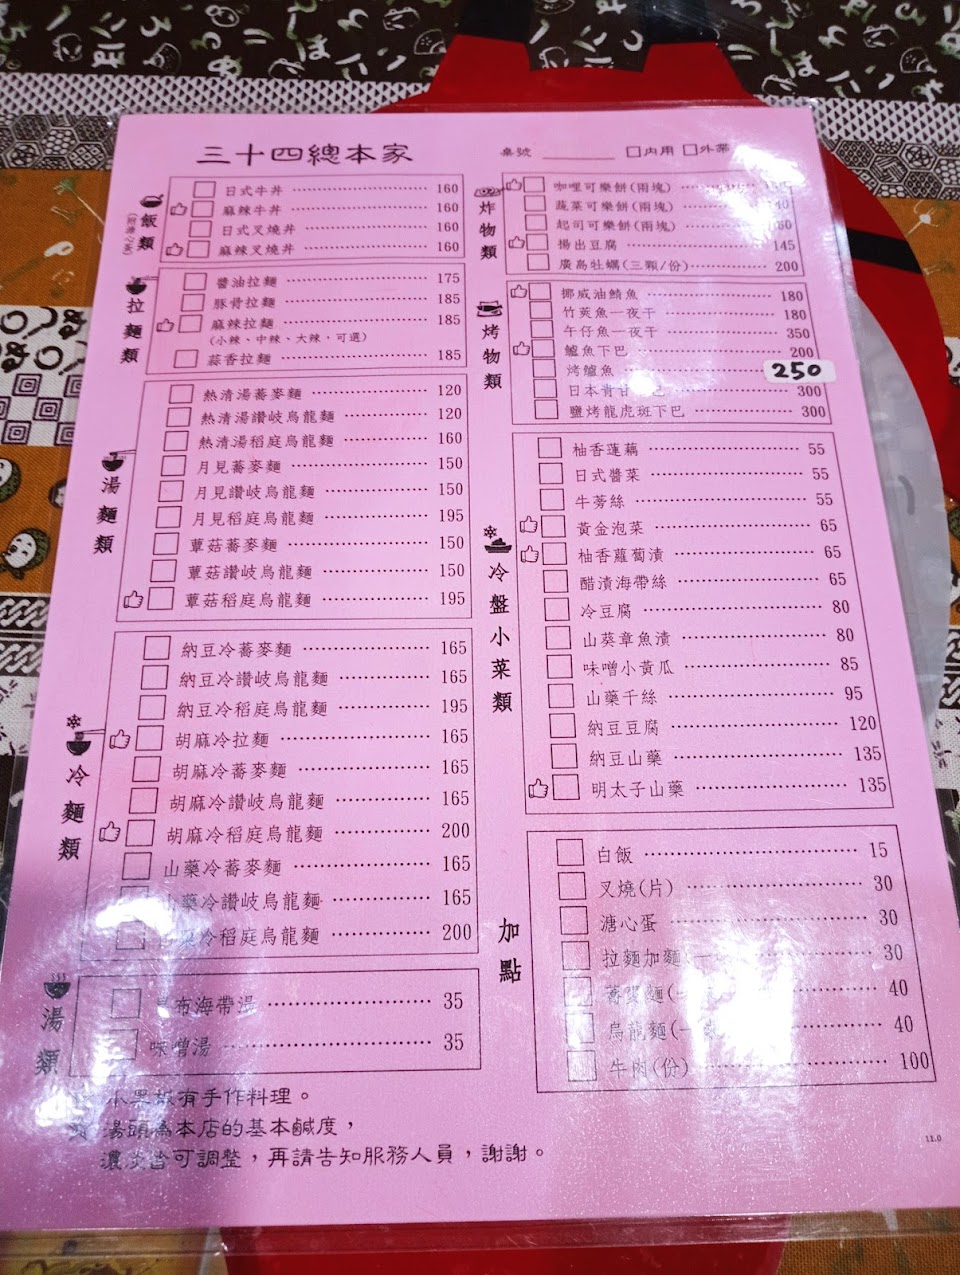 三十四總本家
桌號 ______ □內用 □外帶
飯類
日式牛丼 160
麻辣牛丼 160
日式叉燒丼 160
麻辣叉燒丼 160
拉麵類
醬油拉麵 175
豚骨拉麵 185
麻辣拉麵 185
(小辣、中辣、大辣，可選)
蒜香拉麵 185
湯麵類
熱清湯蕎麥麵 120
熱清湯讚岐烏龍麵 120
熱清湯稻庭烏龍麵 160
月見蕎麥麵 150
月見讚岐烏龍麵 150
月見稻庭烏龍麵 195
蕈菇蕎麥麵 150
蕈菇讚岐烏龍麵 150
蕈菇稻庭烏龍麵 195
冷麵類
納豆冷蕎麥麵 165
納豆冷讚岐烏龍麵 165
納豆冷稻庭烏龍麵 195
胡麻冷拉麵 165
胡麻冷蕎麥麵 165
胡麻冷讚岐烏龍麵 165
胡麻冷稻庭烏龍麵 200
山藥冷蕎麥麵 165
山藥冷讚岐烏龍麵 165
冷稻庭烏龍麵 200
湯類
布海帶湯 35
味噌湯 35
炸物類
咖哩可樂餅(兩塊)
蔬菜可樂餅(兩塊)
起司可樂餅(兩塊)
揚出豆腐 145
廣島牡蠣(三顆/份) 200
烤物類
挪威油鯖魚 180
竹莢魚一夜干 180
午仔魚一夜干 350
鱸魚下巴 200
烤鱸魚 250
日本青甘 巴 300
鹽烤龍虎斑下巴 300
冷盤小菜類
柚香蓮藕 55
日式醬菜 55
牛蒡絲 55
黃金泡菜 65
柚香蘿蔔漬 65
醋漬海帶絲 65
冷豆腐 80
山葵章魚漬 80
味噌小黃瓜 85
山藥千絲 95
納豆豆腐 120
納豆山藥 135
明太子山藥 135
加點
白飯 15
叉燒(片) 30
溏心蛋 30
拉麵加麵 30
蕎麥麵 40
烏龍麵 40
牛肉(份) 100
有手作料理。
湯頭為本店的基本鹹度，
濃淡皆可調整，再請告知服務人員，謝謝。
11.0